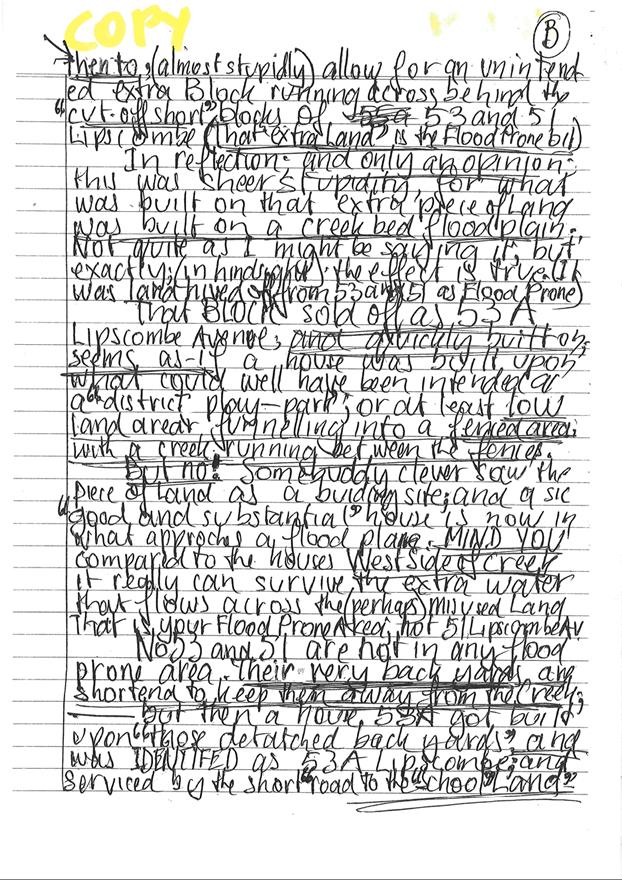 COPY
B
then to, (almost stupidly) allow for an unintend
ed extra Block running across behind the
"cut-off short" blocks of 53 and 51
Lipscombe (That "extra Land" is the Flood Prone bit)
In reflection - and only an opinion:
this was sheer stupidity, for what
was built on that extra piece of Land
was built on a creek bed flood plain.
Not quite as I might be saying it, but
exactly, (in hindsight), the effect is true. (It
was land hived off from 53 and 51 as Flood Prone)
That BLOCK sold off as 53A
Lipscombe Avenue; and quickly built on,
seems as-if a house was built upon
what could well have been intended as
a "district play-park", or at least low
land area funnelling into a fenced area;
with a creek running between the fences.
But no! Somebuddy clever saw the
piece of land as a buiding site; and a sic
"good and substantial" house is now in
what approches a flood plane. MIND YOU
compared to the houses West side of creek
it really can survive the extra water
that flows across the (perhaps) misused Land
That is your Flood Prone Area, not 51 Lipscombe Av
No 53 and 51 are not in any flood
prone area. Their very back yards are
shortend to keep them away from the Creek;
but then a house, 53A got built
upon "those detatched back yards", and
was IDENTIFED as 53A Lipscombe; and
serviced by the short "road to the "school Land"